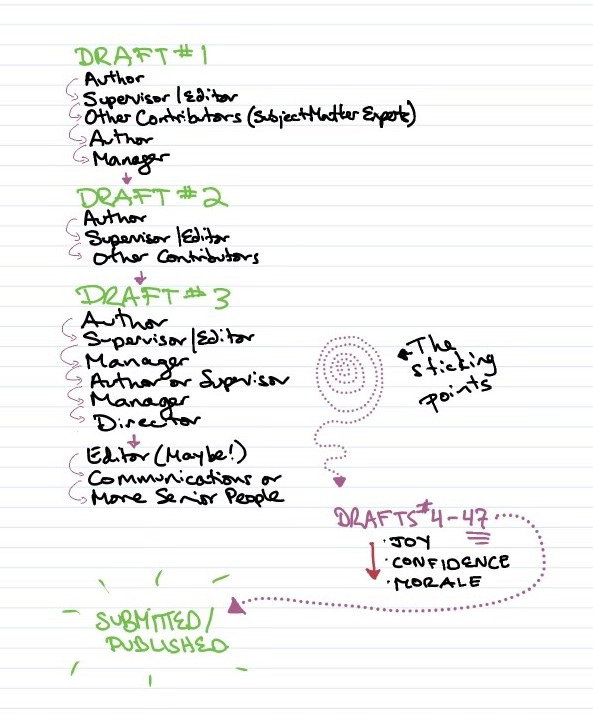 DRAFT #1
Author
Supervisor/Editor
Other Contributors (Subject Matter Experts)
Author
Manager
DRAFT #2
Author
Supervisor/Editor
Other Contributors
DRAFT #3
Author
Supervisor/Editor
Manager
Author or Supervisor
Manager
Director
Editor (Maybe!)
Communications or
More Senior People
The
sticking
points
DRAFTS #4-47
· JOY
· CONFIDENCE
· MORALE
SUBMITTED/
PUBLISHED